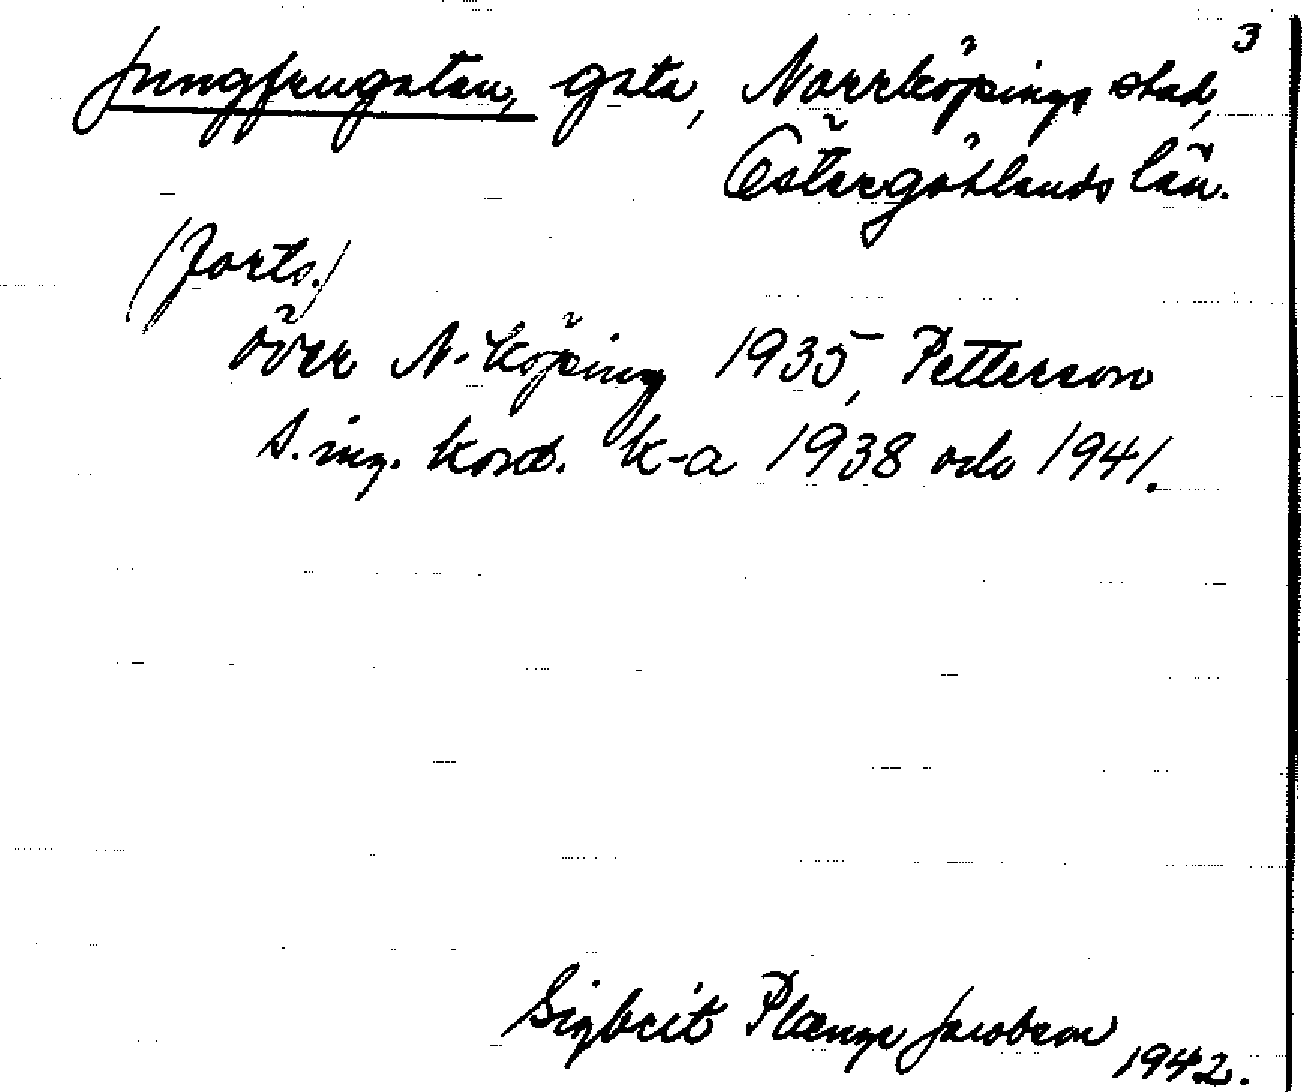 3
Jungfrugatan, gata, Norrköpings stad,
Östergötlands län.
(Forts.)
över N-köping 1935, Petterson
s.ing. kord. k-a 1938 och 1941.
Sigbrit Plænge Jacobson
1942.